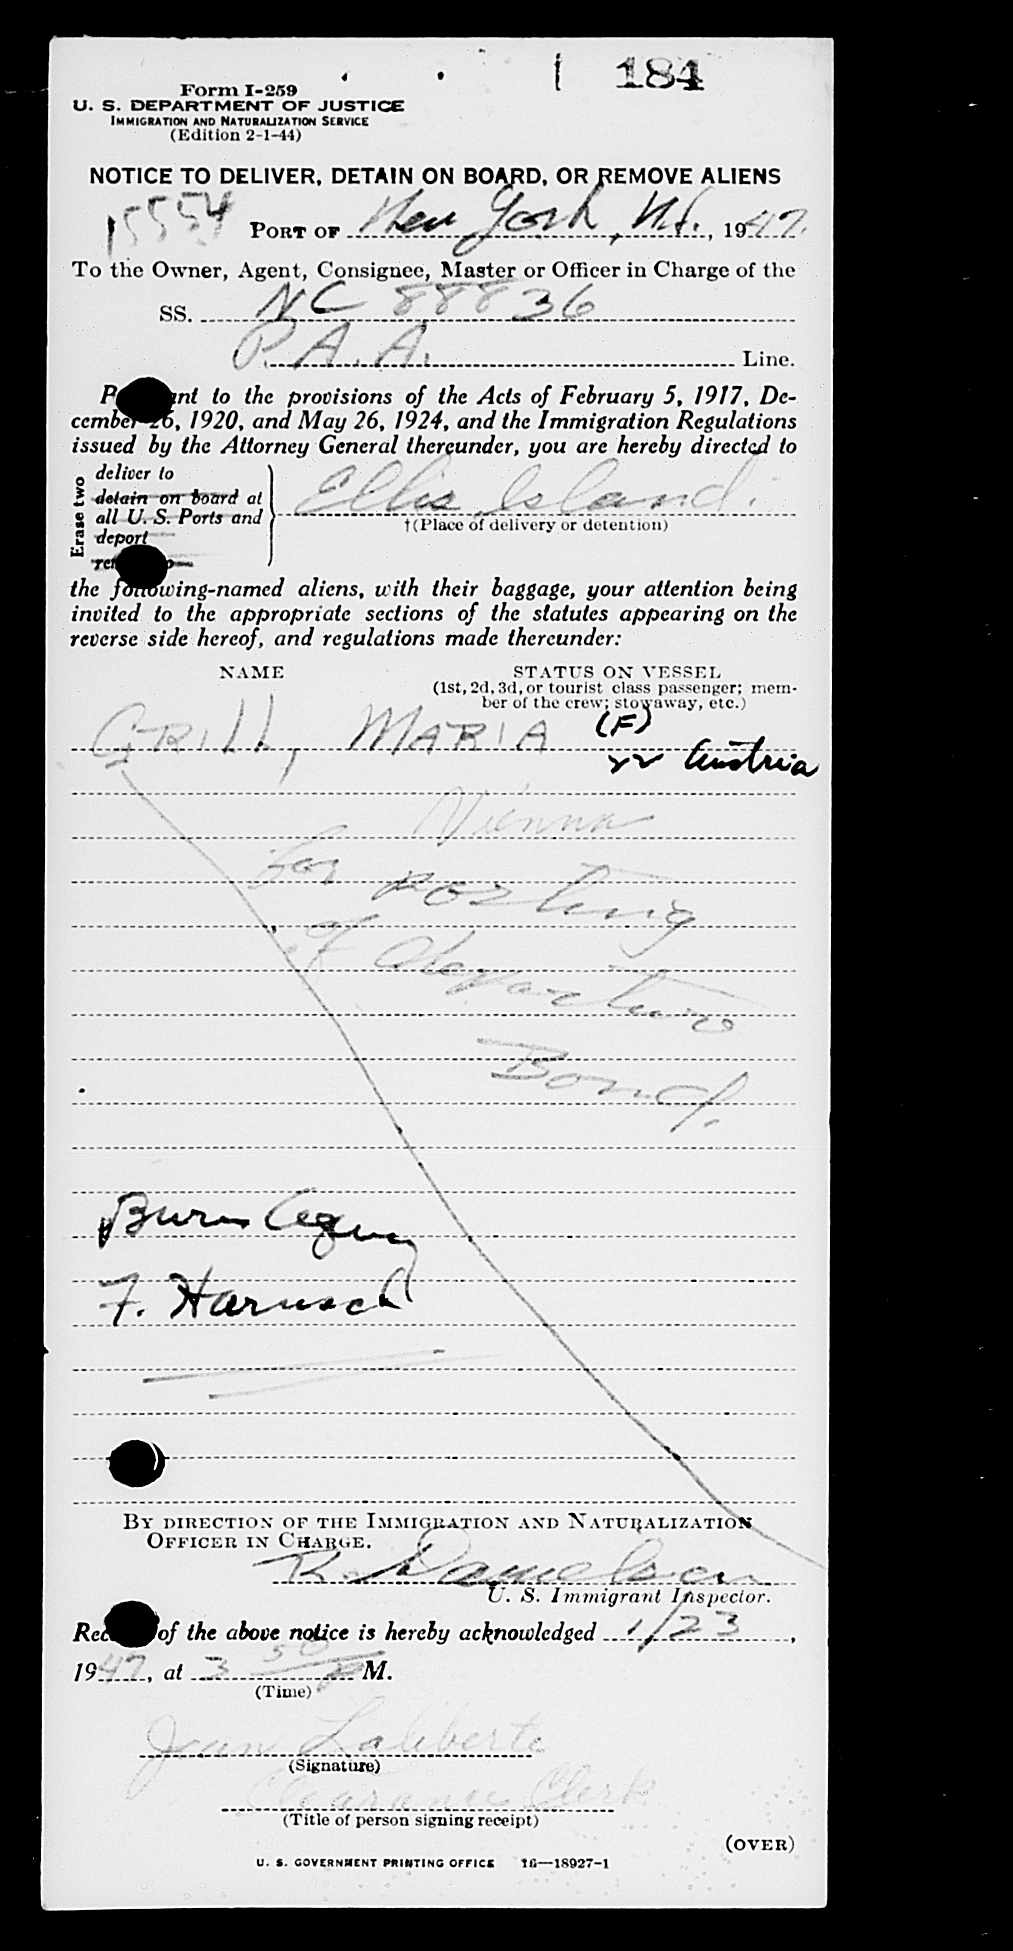 184
Form I-259
U. S. DEPARTMENT OF JUSTICE
IMMIGRATION AND NATURALIZATION SERVICE
(Edition 2-1-44)
NOTICE TO DELIVER, DETAIN ON BOARD, OR REMOVE ALIENS
15554
PORT OF New York, N.Y., 1947.
To the Owner, Agent, Consignee, Master or Officer in Charge of the
SS. NC 88836
P.A.A. Line.
to the provisions of the Acts of February 5, 1917, De-
cember 26, 1920, and May 26, 1924, and the Immigration Regulations
issued by the Attorney General thereunder, you are hereby directed to
Erase two
deliver to
detain on board at
all U. S. Ports and
deport
Ellis Island.
†(Place of delivery or detention)
the following-named aliens, with their baggage, your attention being
invited to the appropriate sections of the statutes appearing on the
reverse side hereof, and regulations made thereunder:
NAME STATUS ON VESSEL
(1st, 2d, 3d, or tourist class passenger; mem-
ber of the crew; stowaway, etc.)
GRILL, MARIA (F)
22 Austria
Vienna
for posting
of departure
Bond.
Burns Agency
F. Harusch
BY DIRECTION OF THE IMMIGRATION AND NATURALIZATION
OFFICER IN CHARGE.
R. Danielsen
U. S. Immigrant Inspector.
of the above notice is hereby acknowledged 1/23,
1947, at 3 50 P M.
(Time)
Jean Laliberte
(Signature)
Clearance Clerk
(Title of person signing receipt)
(OVER)
U. S. GOVERNMENT PRINTING OFFICE 16—18927-1